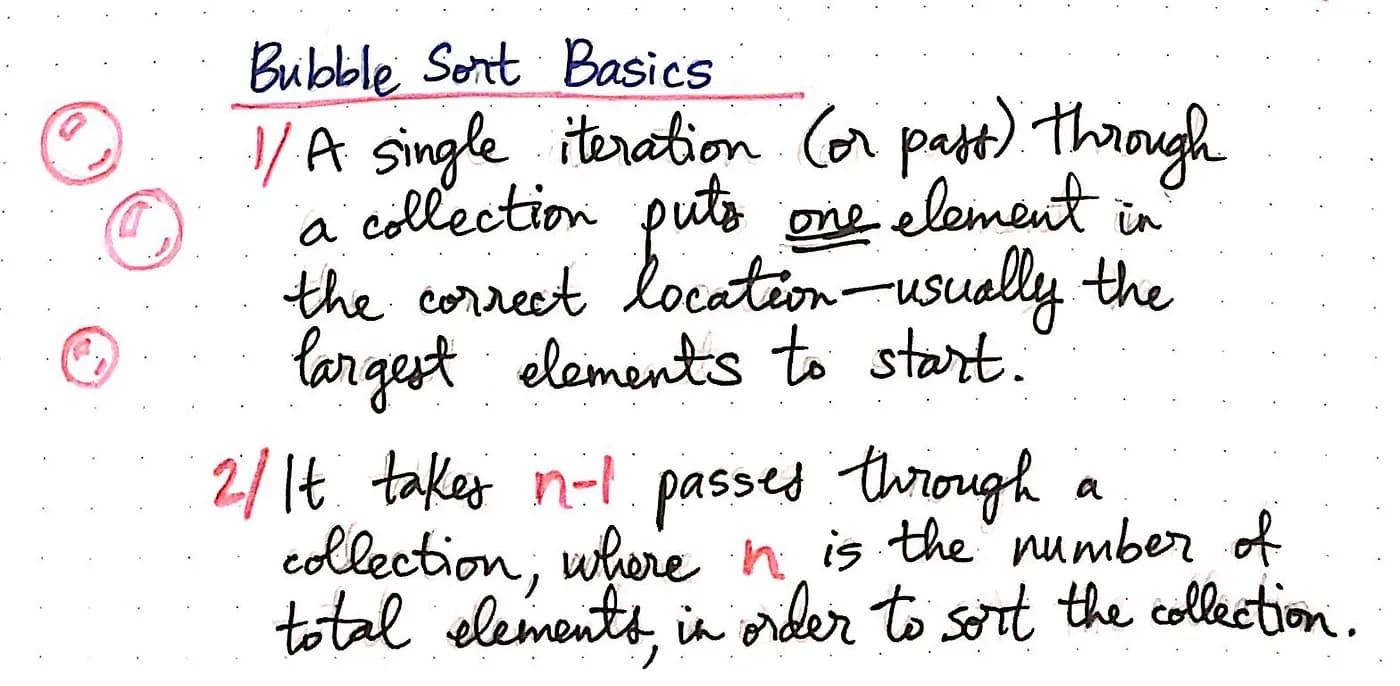 Bubble Sort Basics
1/ A single iteration (or pass) through
a collection puts one element in
the correct location—usually the
largest elements to start.
2/ It takes n-1 passes through a
collection, where n is the number of
total elements, in order to sort the collection.